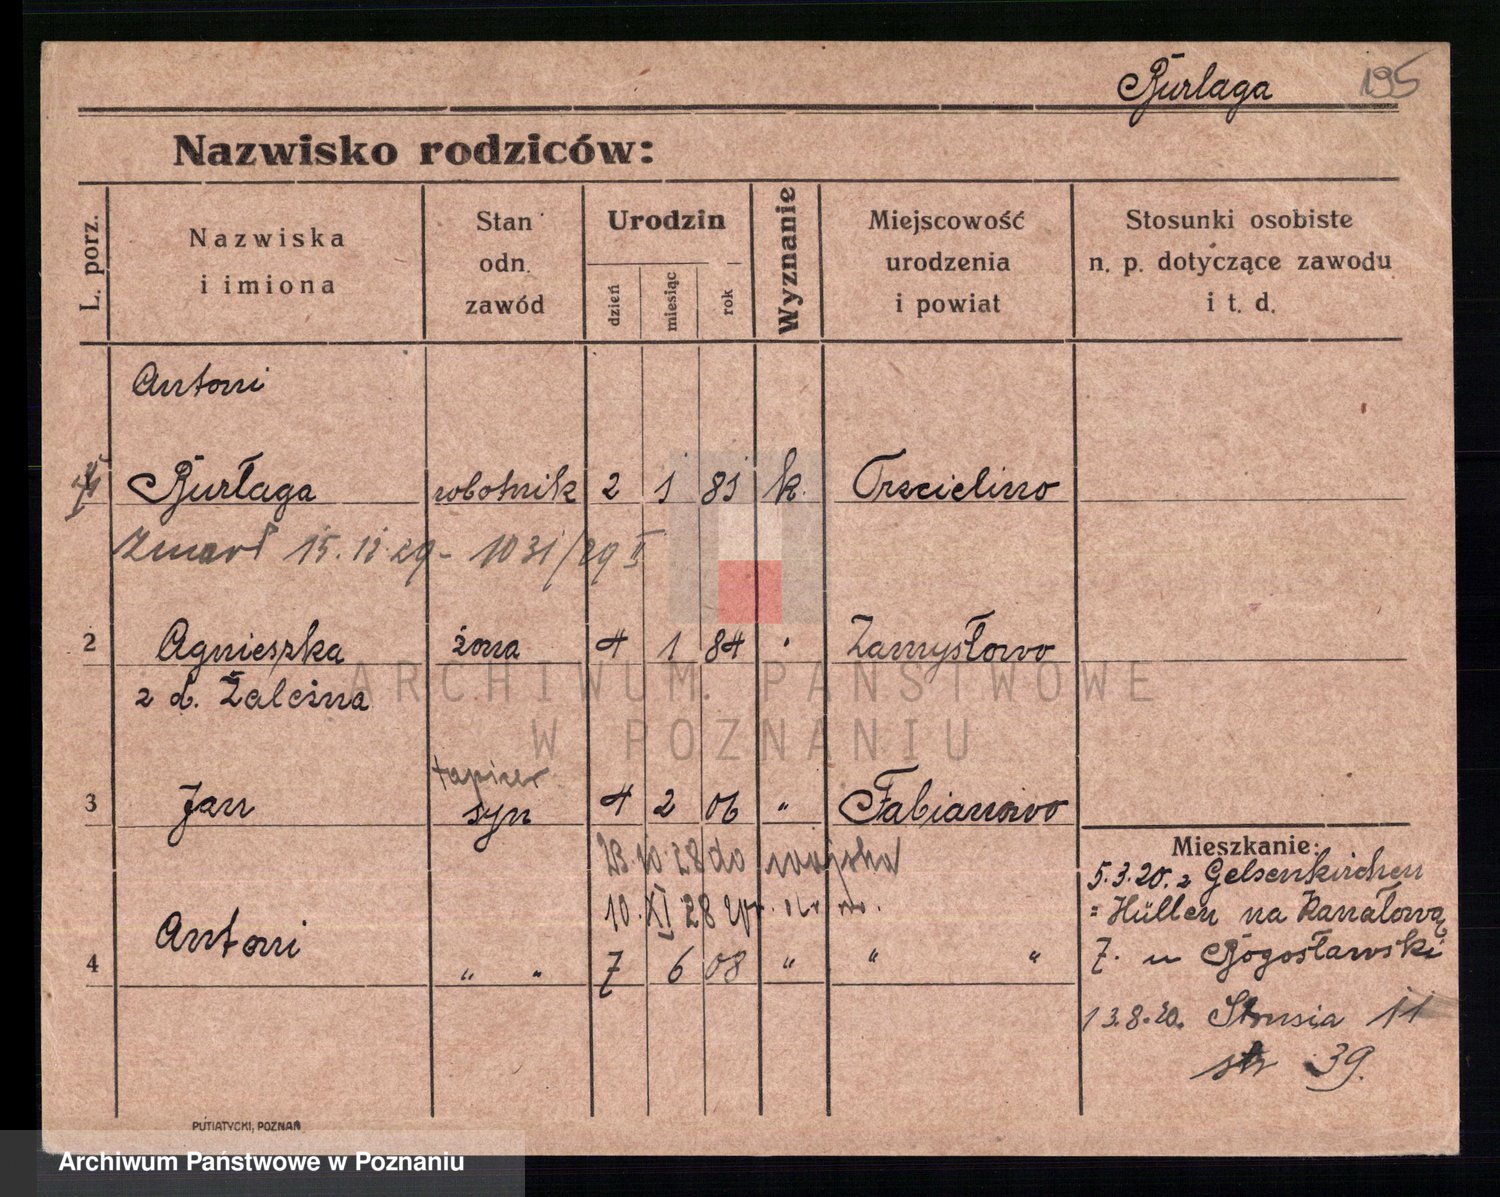 Burlaga 195
Nazwisko rodziców:
L. porz.
Nazwiska
i imiona
Stan
odn.
zawód
Urodzin
dzień
miesiąc
rok
Wyznanie
Miejscowość
urodzenia
i powiat
Stosunki osobiste
n. p. dotyczące zawodu
i t. d.
Antoni
Burłaga robotnik 2 1 81 k. Trzcielino
Zmarł 15.12.29 - 1031/29 I
2 Agnieszka żona 4 1 84 " Zamysłowo
z d. Zaleśna
ARCHIWUM PAŃSTWOWE
W POZNANIU
tapicer
3 Jan syn 4 2 06 " Fabianowo
Mieszkanie:
28.10.28 do wojska
5.3.20. z Gelsenkirchen
10. XI 28
= Hüllen na Kanałową
4 Antoni " " 7 6 08 " " "
7. u Bogosławski
13.8.20. Strusia 11
str 39.
PUTIATYCKI, POZNAŃ
Archiwum Państwowe w Poznaniu